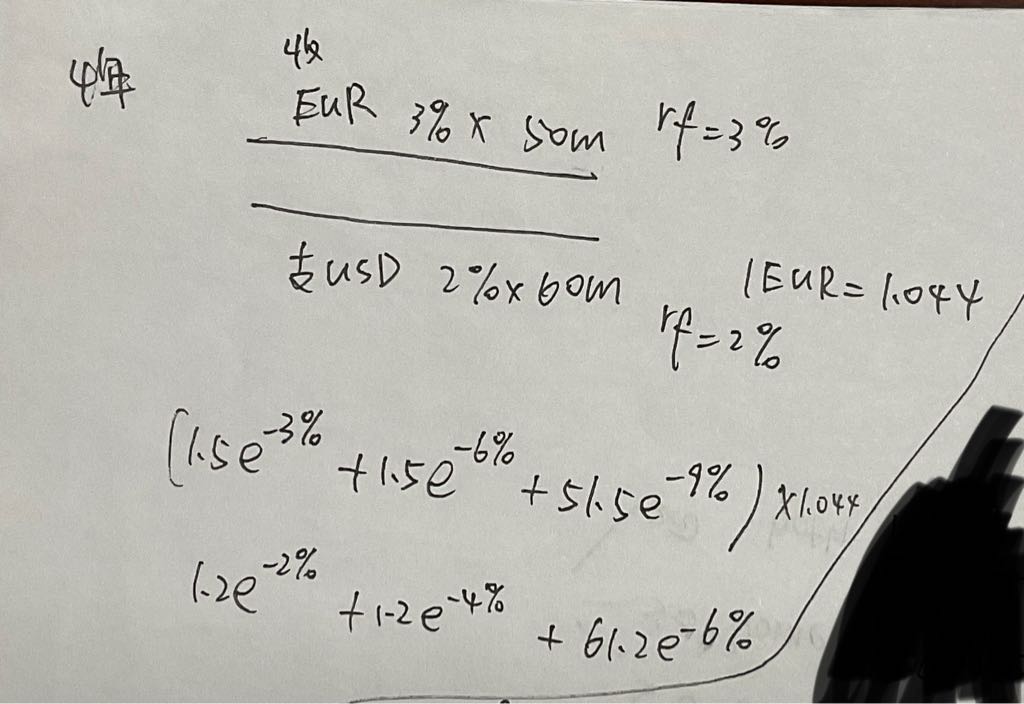 4年
收
EUR 3% × 50m rf=3%
支USD 2%×60m 1EUR=1.044
rf=2%
(1.5e^-3% +1.5e^-6% +51.5e^-9%)×1.044
1.2e^-2% +1.2e^-4% + 61.2e^-6%